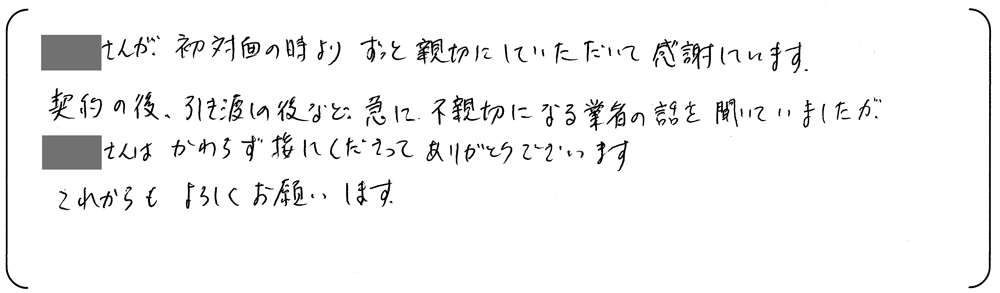 さんが、初対面の時より ずっと親切にしていただいて 感謝しています。
契約の後、引き渡しの後など、急に 不親切になる業者の話を 聞いていましたが、
さんは かわらず接してくださって ありがとうございます
これからも よろしくお願いします。